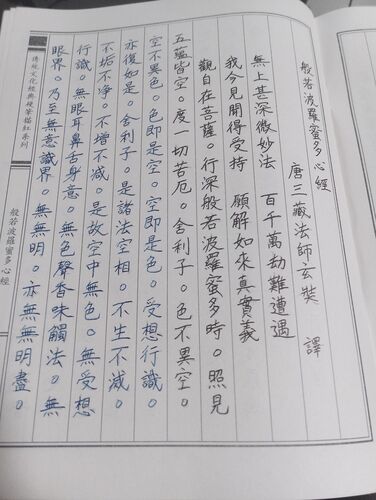 般若波羅蜜多心經
唐三藏法師玄奘 譯
無上甚深微妙法 百千萬劫難遭遇
我今見聞得受持 願解如來真實義
觀自在菩薩。行深般若波羅蜜多時。照見
五蘊皆空。度一切苦厄。舍利子。色不異空。
空不異色。色即是空。空即是色。受想行識。
亦復如是。舍利子。是諸法空相。不生不滅。
不垢不淨。不增不減。是故空中無色。無受想
行識。無眼耳鼻舌身意。無色聲香味觸法。無
眼界。乃至無意識界。無無明。亦無無明盡。
傳統文化經典硬筆描紅系列
般若波羅蜜多心經